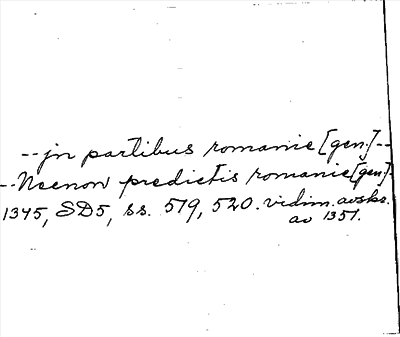 --jn partibus romanie [gen.]--
--Necnon predictis romanie [gen]-
1345, SD5, ss. 519, 520. vidim. avskr.
av 1351.